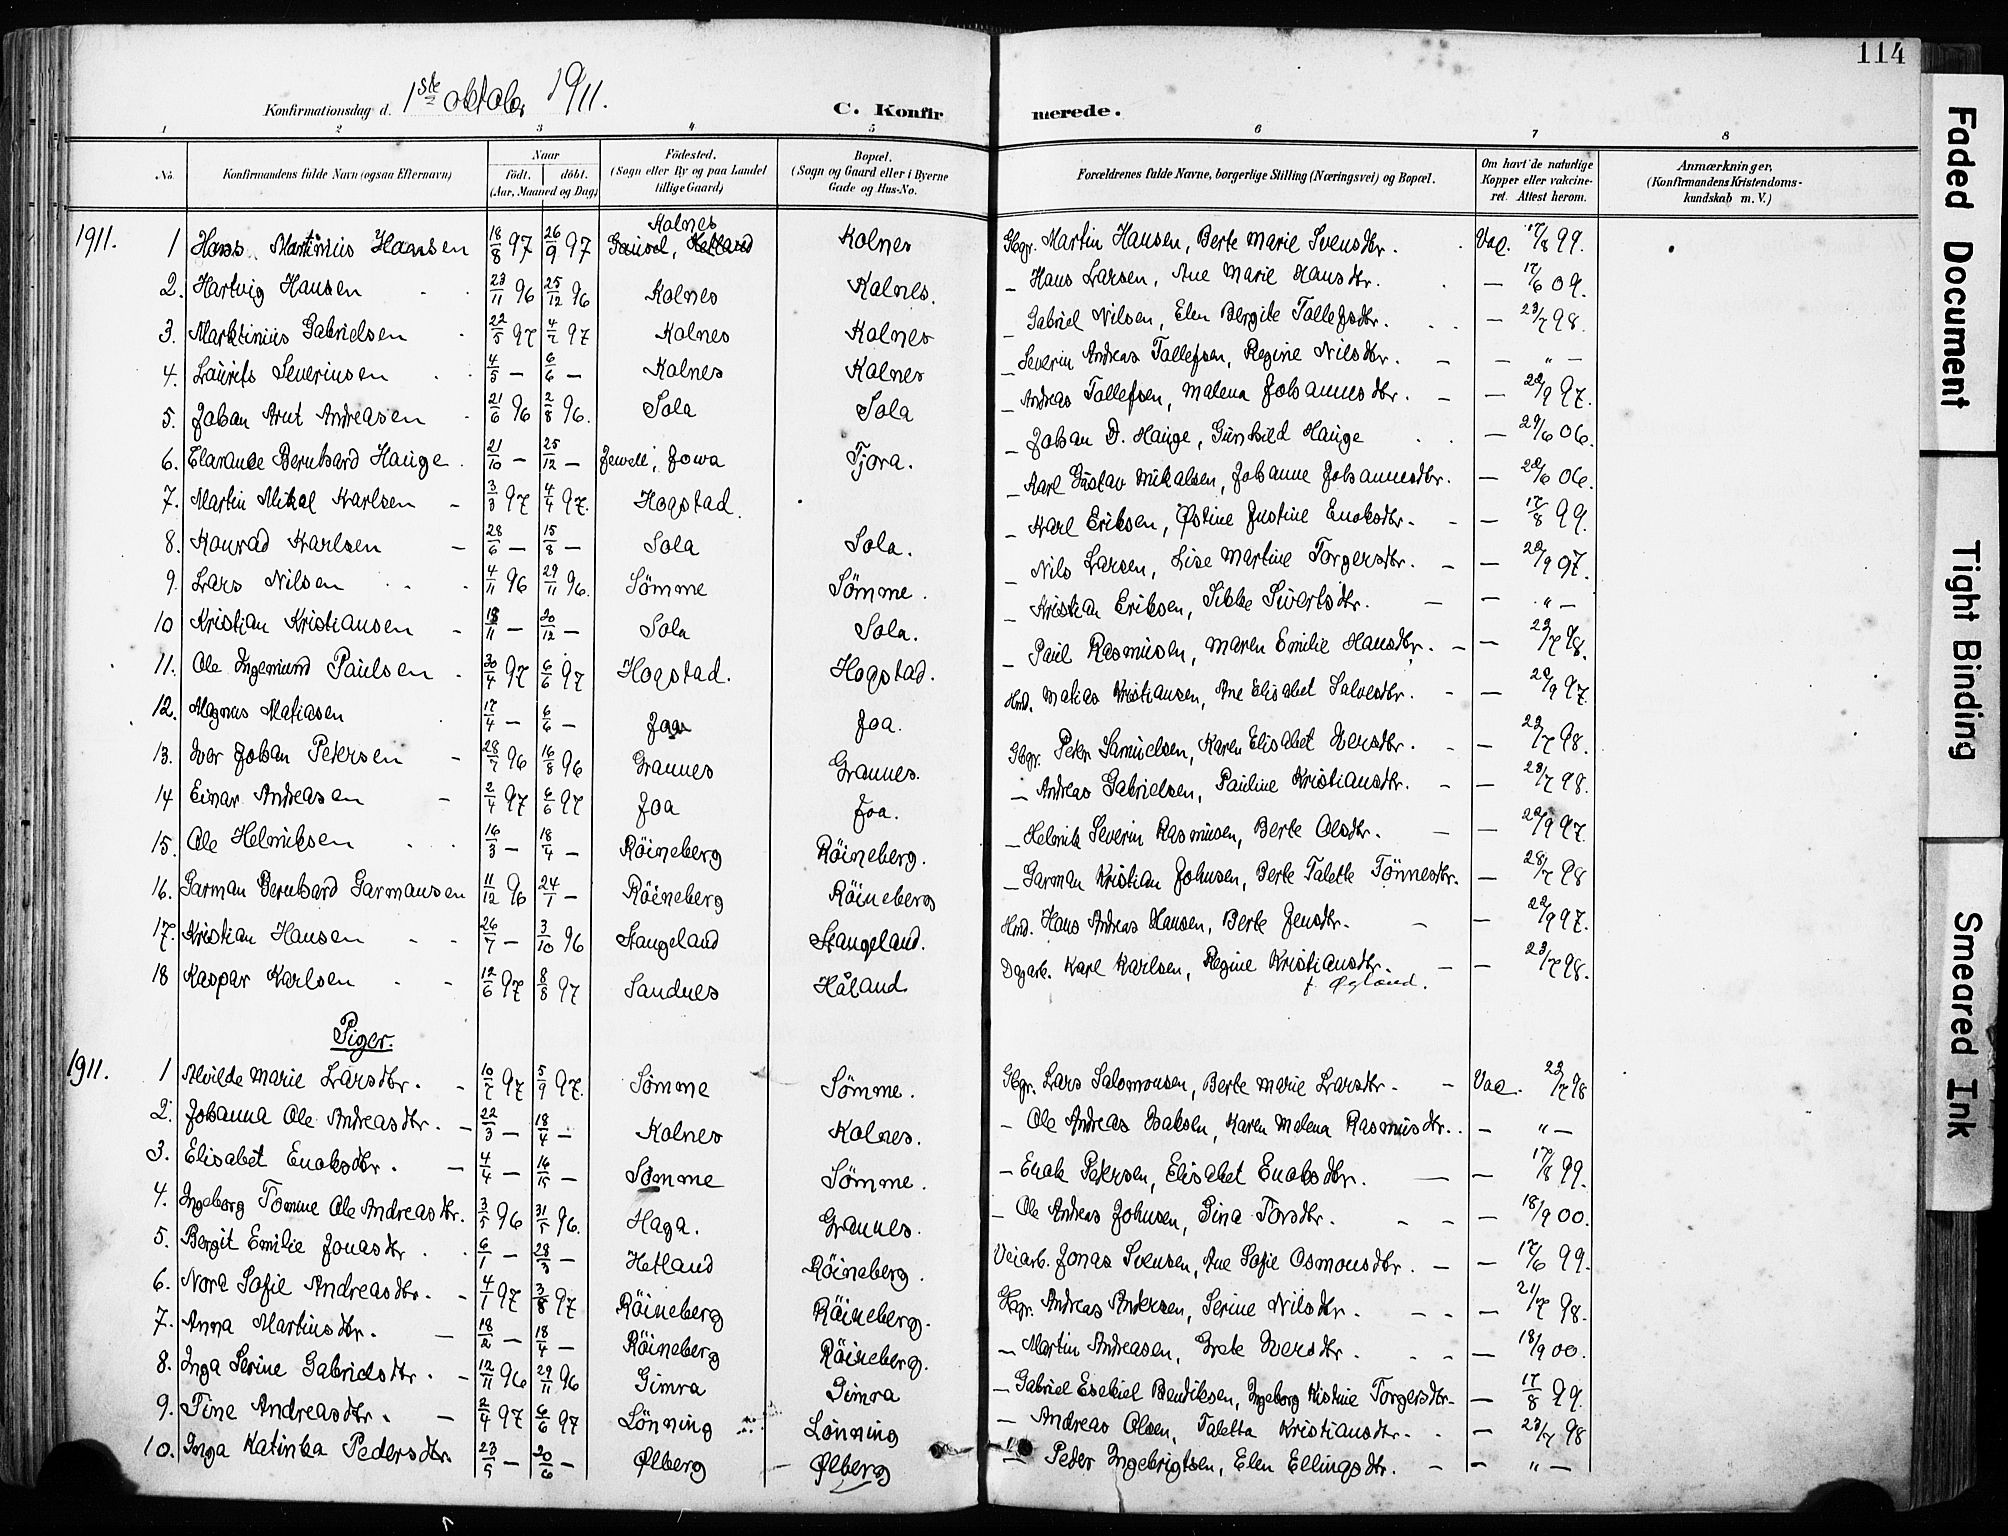 114
Konfirmationsdag d. 1ste oktober 1911.
C. Konfirmerede.
1 2 3 4 5 6 7 8
No. Konfirmandens fulde Navn (ogsaa Efternavn) Naar født. døbt. (Aar, Maaned og Dag) Födested. (Sogn eller By og paa Landet tillige Gaard) Bopæl. (Sogn og Gaard eller i Byerne Gade og Hus-No. Forældrenes fulde Navne, borgerlige Stilling (Næringsvei) og Bopæl. Om havt de naturlige Kopper eller vaccineret. Attest herom. Anmærkninger, (Konfirmandens Kristendomskundskab m. V.)
1911. 1 Hans Martinius Hansen 18/8 97 26/9 97 Kolnes Kolnes Gbgr. Martin Hansen, Berte Marie Svensdtr. Vac. 17/8 99.
2. Hartvig Hansen 23/11 96 25/12 96 Kolnes Kolnes. — Hans Larsen, Ane Marie Hansdtr. — 17/6 09.
3. Marktinius Gabrielsen 22/5 97 4/7 97 Kolnes Kolnes — Gabriel Nilsen, Elen Bergite Tallefsdtr. — 23/7 98.
4. Laurits Severinsen 4/5 — 6/6 — Kolnes Kolnes — Severin Andreas Tallefsen, Regine Nilsdtr. — — " —
5. Johan Arnt Andreasen 21/6 96 2/8 96. Sola Sola — Andreas Tallefsen, Malena Johannesdtr. — — 22/9 97.
6. Clarance Bernhard Hauge 21/10 — 25/12 — Jewell, Jowa Tjora. — Johan D. Hauge, Gunhild Hauge — 29/6 06.
7. Martin Mikal Karlsen 3/3 97 4/4 97. Hogstad. — Karl Gustav Mikalsen, Johanne Johannesdtr. — 22/6 06.
8. Konrad Karlsen 28/6 — 15/8 — Sola Sola. — Karl Eriksen, Østine Justine Enoksdtr. — — 17/8 99.
9. Lars Nilsen 4/11 96 29/11 96. Sömme Sömme. — Nils Larsen, Lise Martine Torgersdtr. — — 22/9 97.
10 Kristian Kristiansen 18/11 — 20/12 — Sola Sola. — Kristian Eriksen, Sikke Sivertsdtr. — — " —
11. Ole Ingemund Paulsen 30/4 97 6/6 97 Hogstad. Hogstad. — Paul Rasmusen, Maren Emilie Hansdtr. — — 23/7 98.
12. Magnus Matiasen 17/4 — 6/6 — Joa Joa. Hmd. Matias Kristiansen, Ane Elisabet Salvesdtr. — — 22/9 97.
13. Iver Johan Petersen 28/7 96 16/8 96 Grannes Grannes. Gbgr. Peter Samuelsen, Karen Elisabet Iversdtr. — — 23/7 98.
14 Einar Andreasen 2/4 97 6/6 97 Joa Joa. — Andreas Gabrielsen, Pauline Kristiansdtr. — — 23/7 98.
15. Ole Helmiksen 16/3 — 18/4 — Röineberg Röineberg. — Helmik Severin Rasmusen, Berte Olsdtr. — — 22/9 97.
16. Garman Bernhard Garmansen 11/12 96 24/1 — Röineberg Röineberg — Garman Kristian Johnsen, Berte Talette Tönnesdtr. — 23/7 98
17. Kristian Hansen 26/7 — 3/10 96 Stangeland Stangeland. Hmd. Hans Andreas Hansen, Berte Jensdtr. — — 22/9 97.
18 Kaspar Karlsen 12/6 97 8/8 97 Sandnes Håland. Dagarb. Karl Karlsen, Regine Kristiansdtr. — — 23/7 98.
f. Øgland.
Piger.
1911. 1 Alvilde Marie Larsdtr. 10/7 97 5/9 97. Sömme Sömme. Gbgr. Lars Salomonsen, Berte Marie Larsdtr. — Vac. 23/7 98
2. Johanna Ole Andreasdtr. 22/3 — 18/4 — Kolnes Kolnes. — Ole Andreas Isaksen, Karen Malena Rasmusdtr. — " —
3. Elisabet Enoksdtr. 4/4 — 16/5 — Sömme Sömme. — Enok Petersen, Elisabet Enoksdtr. — — 17/8 99.
4. Ingeborg Tomine Ole Andreasdtr. 3/5 96 31/5 96. Haga. Grannes. — Ole Andreas Johnsen, Gina Torsdtr. — — 18/9 00.
5. Bergit Emilie Jonasdtr 6/1 — Hetland Röineberg. Veiarb. Jonas Svensen, Ane Sofie Osmonsdtr. — — 17/6 99.
6. Nora Sofie Andreasdtr. 4/1 97 97 Röineberg Röineberg. Gbgr. Andreas Andersen, Serine Nilsdtr. — — 21/7 98.
7. Anna Martinsdtr. 18/2 — 18/4 — Röineberg Röineberg. — Martin Andreasen, Grete Iversdtr. — — 18/9 00.
8. Inga Serine Gabrielsdtr. 12/11 96 29/11 96 Gimra Gimra — Gabriel Esekiel Bendiksen, Ingeborg Kistine Torgersdtr. — 17/8 99.
9. Tine Andreasdtr. 2/4 97 6/6 97 Lönning Lönning — Andreas Olsen, Taletta Kristiansdtr. — 23/7 98
10. Inga Katinka Pedersdtr. 23/5 — 20/6 — Ølberg Ølberg — Peder Ingebrigtsen, Elen Ellingsdtr. — — " —
Faded Document
Tight Binding
Smeared Ink